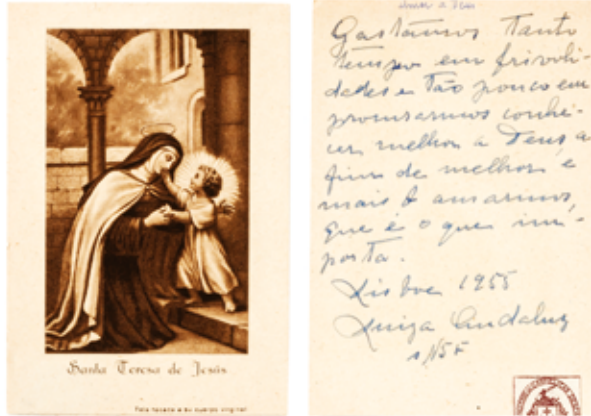 Santa Teresa de Jesús
amar a Deus
Gastámos tanto
tempo em frivoli-
dades e tão pouco em
procurarmos conhe-
cer melhor a Deus, a
fim de melhor e
mais o amarmos,
que é o que im-
porta.
Lisboa 1955
Luiza Andaluz